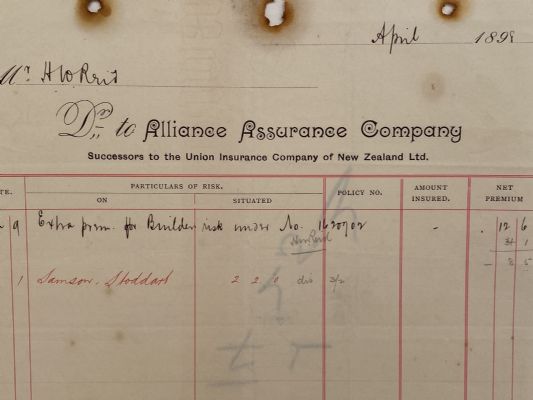 April 1898
Mr. H W Reid
Dr. to Alliance Assurance Company
Successors to the Union Insurance Company of New Zealand Ltd.
TE. PARTICULARS OF RISK. POLICY NO. AMOUNT INSURED. NET PREMIUM
ON SITUATED
9 Extra prem. for Builders risk under No. 1620702 - . 12 6
- 8 5
1 Samson. Stoddart 2 2 0 dis 3/2